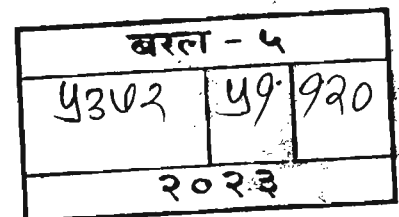 बरल - ५
५३७२ ५१ १२०
२०२३